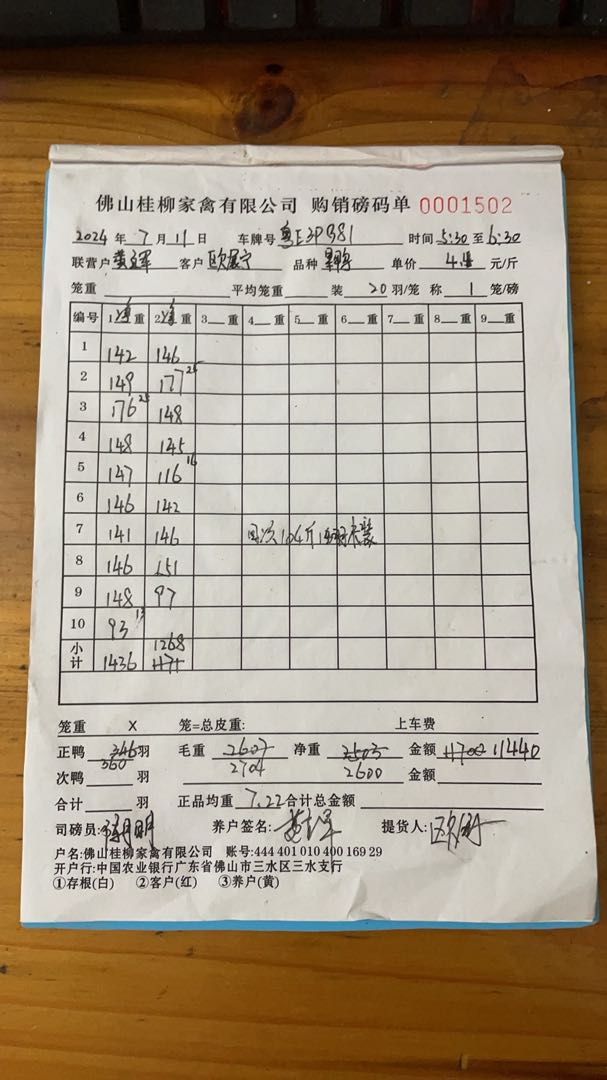 佛山桂柳家禽有限公司 购销磅码单 0001502
2024 年 7 月 11 日 车牌号 粤E3P981 时间 5:30 至 6:30
联营户 客户 欧展宁 品种 单价 元/斤
笼重 平均笼重 装 20 羽/笼 称 1 笼/磅
编号 1 重 2 重 3 重 4 重 5 重 6 重 7 重 8 重 9 重
1 142 146
2 149 177 25
3 176 25 148
4 148 145
5 147 116 16
6 146 142
7 141 146 104斤
8 146 151
9 148 97
10 93 13
小计 1436 1268 1171
笼重 X 笼=总皮重: 上车费
正鸭 346 羽 毛重 2607 净重 2503 金额 11440
360 2704 2600
次鸭 羽 金额
合计 羽 正品均重 7.22 合计总金额
司磅员: 养户签名: 提货人:
户名:佛山桂柳家禽有限公司 账号:444 401 010 400 169 29
开户行:中国农业银行广东省佛山市三水区三水支行
①存根(白) ②客户(红) ③养户(黄)